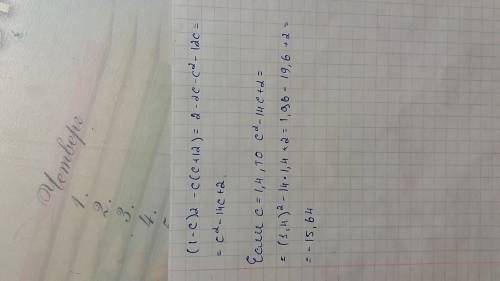 (1-c)2 - c(c+12) = 2-2c-c²-12c =
= c²-14c+2.
Если c=1,4, то c²-14c+2 =
= (1,4)²-14·1,4+2 = 1,96-19,6+2 =
= -15,64
Четверг
1.
2.
3.
4.